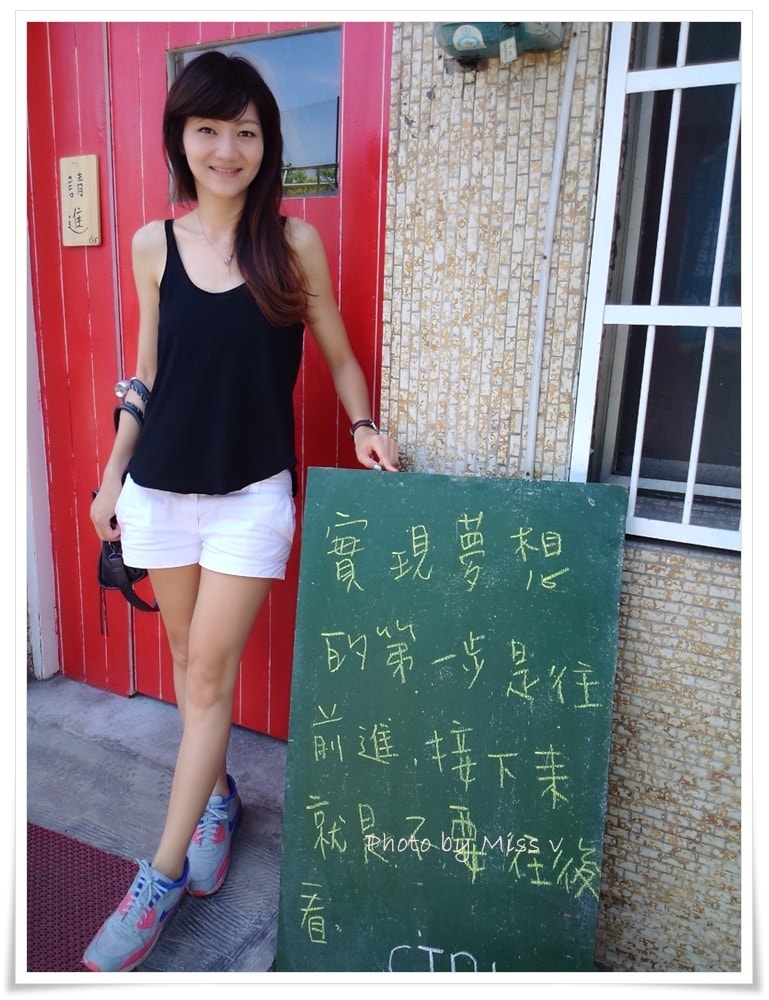 請進
實現夢想
的第一步是往
前進,接下來
就是不要往後
看。
Photo by Miss v